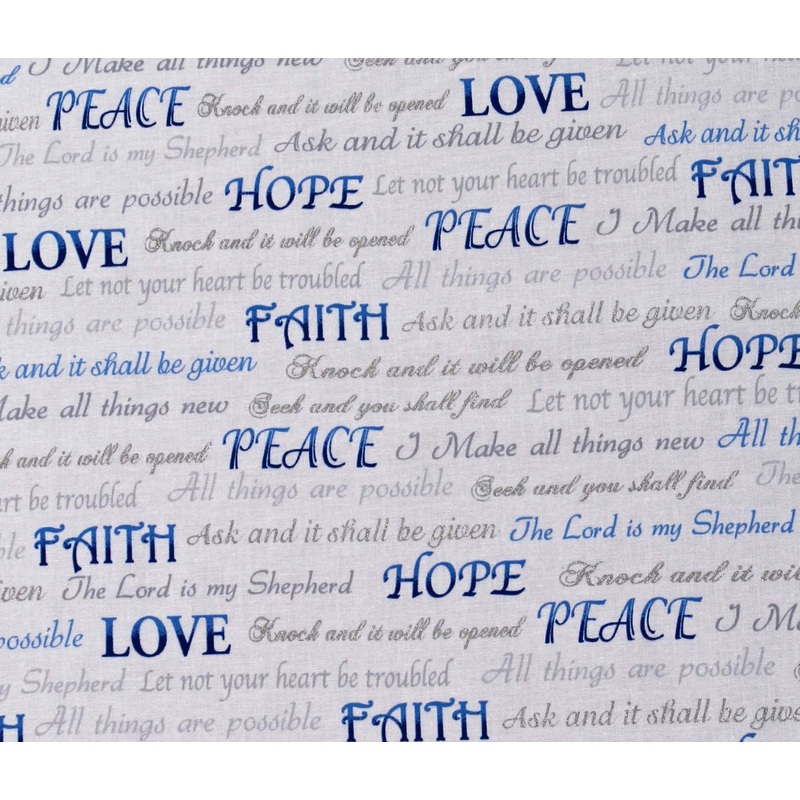 I Make all things new Seek and you shall find Let not your heart be
given PEACE Knock and it will be opened LOVE All things are
The Lord is my Shepherd Ask and it shall be given Ask and it
things are possible HOPE Let not your heart be troubled FAIT
LOVE Knock and it will be opened PEACE I Make all
given Let not your heart be troubled All things are possible The Lord
things are possible FAITH Ask and it shall be given Knock
and it shall be given Knock and it will be opened HOPE
Make all things new Seek and you shall find Let not your heart be
and it will be opened PEACE I Make all things new All
be troubled All things are possible Seek and you shall find The
FAITH Ask and it shall be given The Lord is my Shepherd
given The Lord is my Shepherd HOPE Knock and it
possible LOVE Knock and it will be opened PEACE I
Shepherd Let not your heart be troubled All things are possible
H All things are possible FAITH Ask and it shall be give